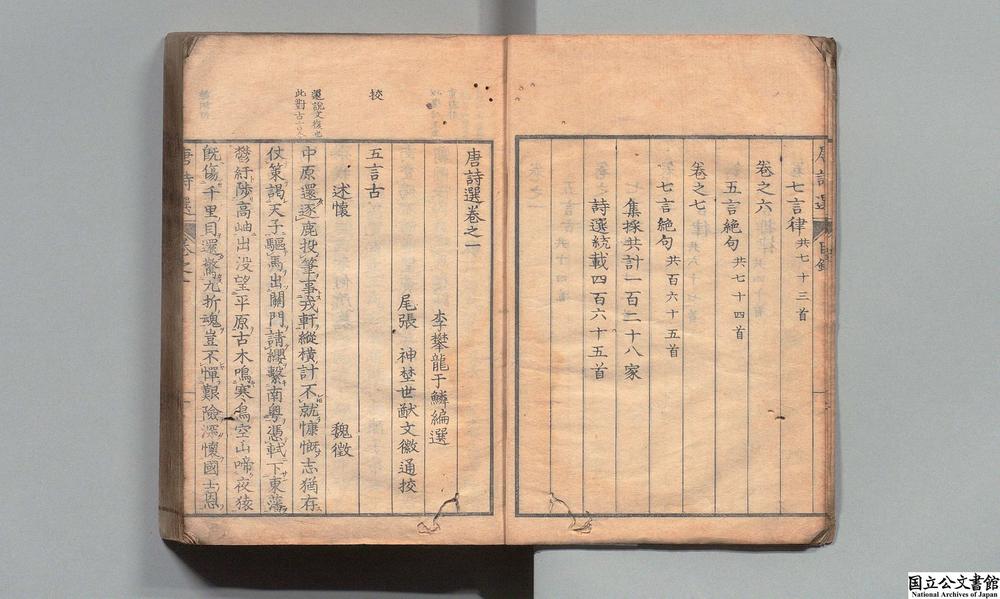 七言律 共七十三首
卷之六
五言絶句 共七十四首
卷之七
七言絶句 共百六十五首
集採共計一百二十八家
詩選統載四百六十五首
唐詩選卷之一
李攀龍于鱗編選
尾張 神埜世猷文徽通挍
挍
五言古
述懷 魏徵
中原還逐鹿投筆事戎軒縱橫計不就慷慨志猶存
仗策謁天子驅馬出關門請纓繫南粤憑軾下東藩
鬱紆陟高岫出没望平原古木鳴寒鳥空山啼夜猿
旣傷千里目還驚九折魂豈不憚艱險深懷國士恩
国立公文書館
National Archives of Japan